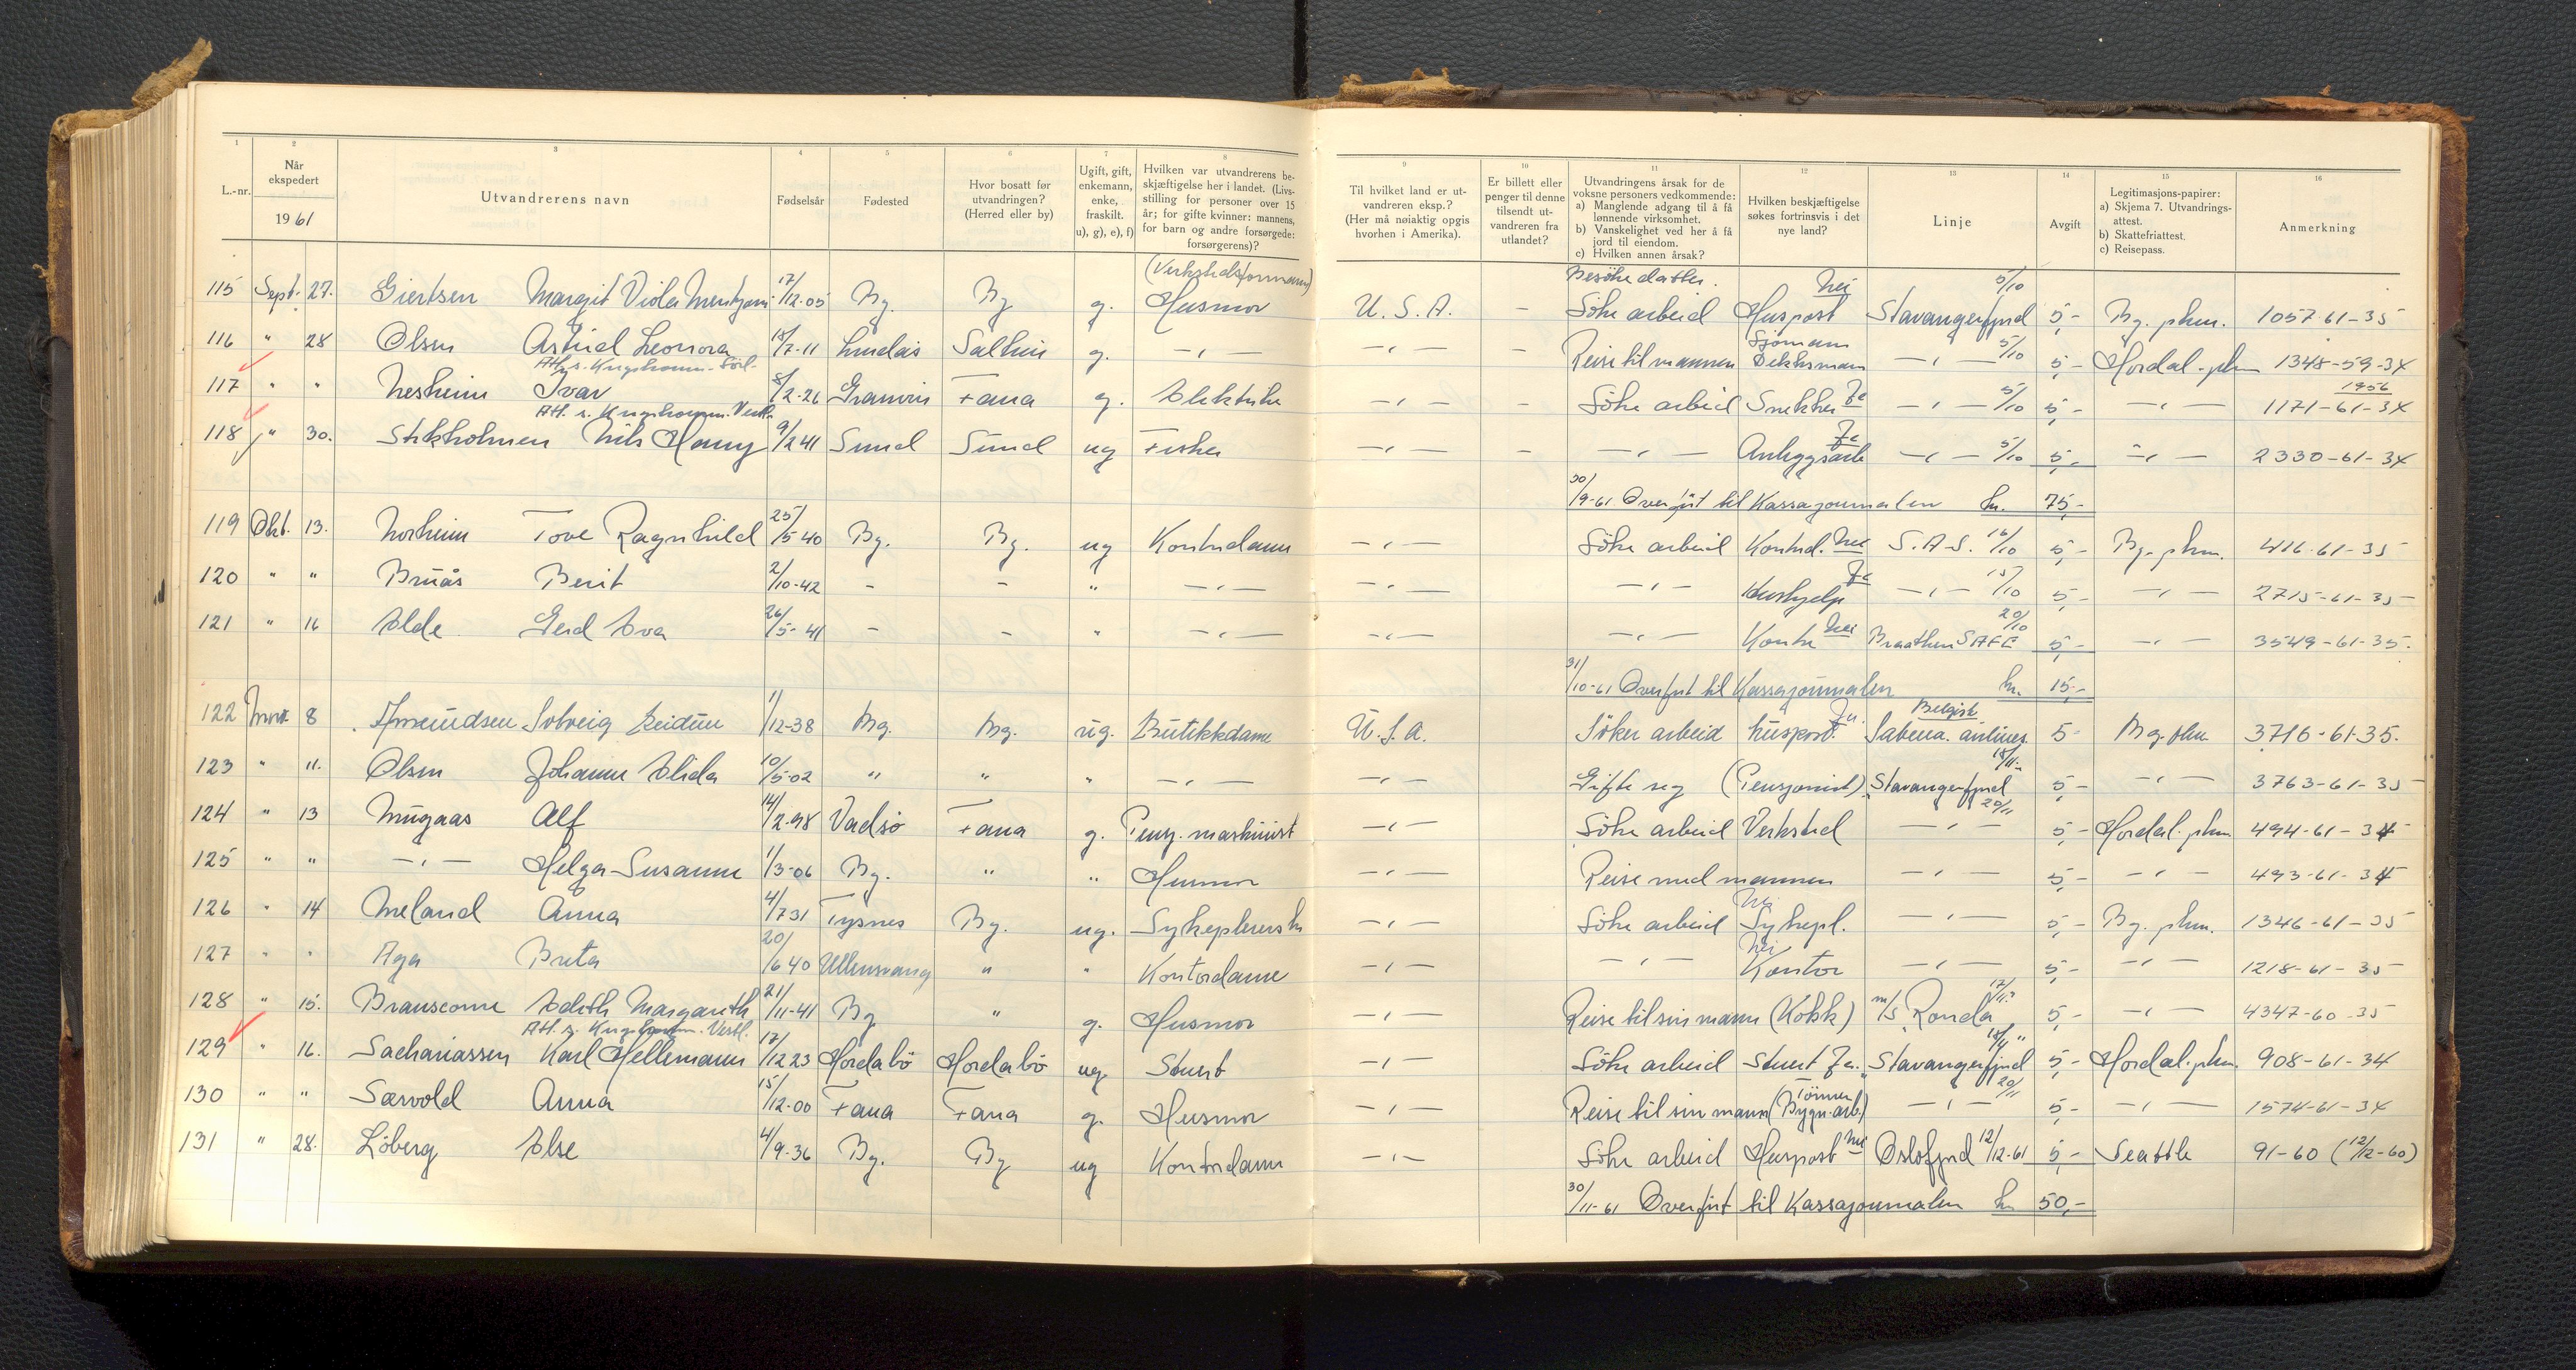 1 2 3 4 5 6 7 8 9 10 11 12 13 14 15 16
L.-nr. Når ekspedert 1961 Utvandrerens navn Fødselsår Fødested Hvor bosatt før utvandringen? (Herred eller by) Ugift, gift, enkemann, enke, fraskilt. u), g), e), f) Hvilken var utvandrerens beskjæftigelse her i landet. (Livsstilling for personer over 15 år; for gifte kvinner: mannens, for barn og andre forsørgede: forsørgerens)? Til hvilket land er utvandreren eksp.? (Her må nøiaktig opgis hvorhen i Amerika). Er billett eller penger til denne tilsendt utvandreren fra utlandet? Utvandringens årsak for de voksne personers vedkommende: a) Manglende adgang til å få lønnende virksomhet. b) Vanskelighet ved her å få jord til eiendom. c) Hvilken annen årsak? Hvilken beskjæftigelse søkes fortrinsvis i det nye land? Linje Avgift Legitimasjons-papirer: a) Skjema 7. Utvandringsattest. b) Skattefriattest. c) Reisepass. Anmerkning
(Verkstedsformann) Besöke datter. Nei 5/10
115 Sept. 27. Giertsen Margit Viola 17/12-05 Bg. Bg g. Husmor U.S.A. - Söke arbeid Huspost Stavangerfjord 5,- Bg. phm. 1057-61-35
Sjömann 5/10
116 " 28 Olsen Astrid Leonora 18/7-11 Lindås Salhus g. -"- -"- - Reise til mannen Dekksmann -"- 5,- Hordal. phm 1348-59-34
Att. s. Krigskomm. 1956
117 " " Nesheim Ivar 8/2-26 Granvin Fana g. -"- - Söke arbeid Snekker Ja -"- 5/10 5,- -"- 1171-61-34
Att. s. Krigskomm. Vestl.
118 " 30. Stekholmen Nils 9/2 41 Sund Sund ug Fisker -"- - -"- Anleggsarb Ja -"- 5/10 5,- -"- 2330-61-34
30/9-61 Overfört til Kassajournalen kr. 75,-
119 Okt. 13. Norheim Tove Ragnhild 25/5 40 Bg. Bg. ug Kontordame -"- Söke arbeid Kontord. Nei S.A.S. 16/10 5,- Bg. phm. 416-61-35
120 " " Bruås Berit 2/10-42 - - " -"- -"- -"- Hushjelp Ja -"- 15/10 5,- -"- 2715-61-35
121 " 16 Elde Gerd Eva 26/5-41 - - " -"- -"- -"- Kontor Nei Braathen SAFE 20/10 5,- -"- 3549-61-35.
31/10-61 Overfört til Kassajournalen kr. 15,-
Belgisk
122 Nov. 8 Amundsen Solveig Reidun 1/12-38 Bg. Bg. ug. Butikkdame U.S.A. Söker arbeid huspost. Ja. Sabena airlines 5- Bg. phm. 3716-61-35.
123 " 11. Olsen Johanne Elida 10/5-02 " " " -"- -"- Gifte seg (Pensjonist) Stavangerfjord 18/11- 5,- -"- 3763-61-35
124 " 13 Mugaas Alf 14/2-98 Vadsö Fana g. Pensj. maskinist -"- Söke arbeid Verksted -"- 20/11 5,- Hordal. phm 494-61-34
125 " " -"- Helga Susanne 1/3-06 Bg. " " Husmor -"- Reise med mannen -"- 5,- -"- 493-61-34
126 " 14 Meland Anna 4/7 31 Tysnes Bg. ug. Sykepleierske -"- Söke arbeid Nei Sykepl. -"- 5,- Bg. phm. 1346-61-35
127 " " Aga Brita 20/6 40 Ullensvang " " Kontordame -"- -"- Nei Kontor -"- 5,- -"- 1218-61-35
128 " 15. Branscome Edith Margareth 21/11-41 Bg " g. Husmor -"- Reise til sin mann (Kokk) m/s Ronda 17/11? 5,- -"- 4347-60-35
Att. s. Krigskomm. Vestl.
129 " 16. Sachariassen Karl Hellemann 17/12 23 Hordabö Hordabö ug Stuert -"- Söke arbeid Stuert Ja. "Stavangerfjord" 5,- Hordal. phm. 908-61-34
Tömmer
130 " " Særvold Anna 15/12-00 Fana Fana g. Husmor -"- Reise til sin mann (Bygn.arb.) -"- 20/11 5,- -"- 1574-61-34
131 " 28. Löberg Else 4/9-36 Bg. Bg ug Kontordame -"- Söke arbeid Huspost Nei Oslofjord 12/12-61 5,- Seattle 91-60 (12/12-60)
30/11-61 Overfört til Kassajournalen kr 50,-